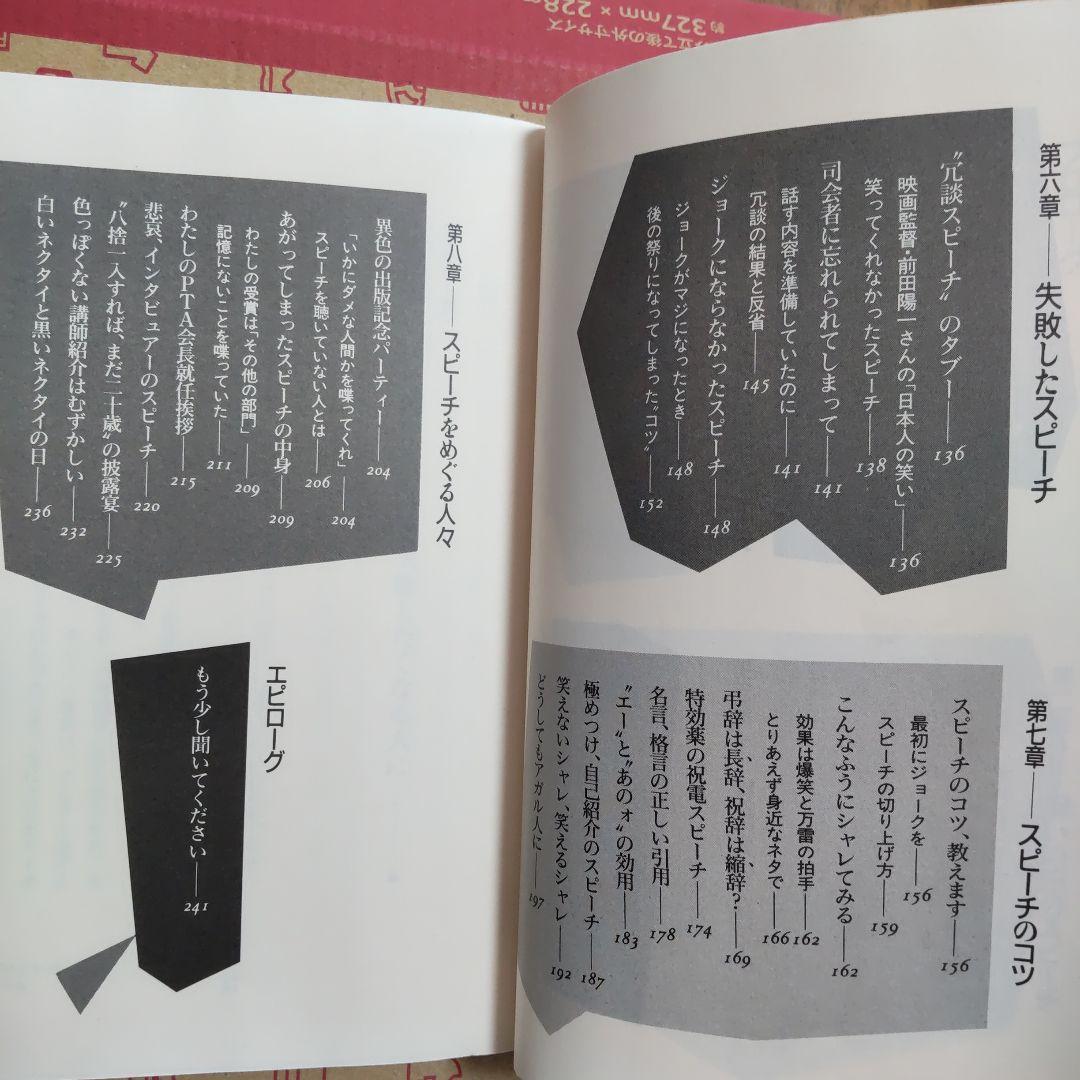 み立て後の外寸サイズ
約327mm × 228
第六章――失敗したスピーチ
〝冗談スピーチ〟のタブー――136
映画監督・前田陽一さんの「日本人の笑い」――136
笑ってくれなかったスピーチ――138
司会者に忘れられてしまって――141
話す内容を準備していたのに――141
冗談の結果と反省――145
ジョークにならなかったスピーチ――148
ジョークがマジになったとき――148
後の祭りになってしまった〝コツ〟――152
第七章――スピーチのコツ
スピーチのコツ、教えます――156
最初にジョークを――156
スピーチの切り上げ方――159
こんなふうにシャレてみる――162
効果は爆笑と万雷の拍手――162
とりあえず身近なネタで――166
弔辞は長辞、祝辞は縮辞?――169
特効薬の祝電スピーチ――174
名言、格言の正しい引用――178
〝エー〟と〝あのォ〟の効用――183
極めつけ、自己紹介のスピーチ――187
笑えないシャレ、笑えるシャレ――192
どうしてもアガル人に――197
第八章――スピーチをめぐる人々
異色の出版記念パーティー――204
「いかにダメな人間かを喋ってくれ」――204
スピーチを聴いていない人とは――206
あがってしまったスピーチの中身――209
わたしの受賞は、「その他の部門」――209
記憶にないことを喋っていた――211
わたしのPTA会長就任挨拶――215
悲哀、インタビュアーのスピーチ――220
〝八捨一入すれば、まだ二十歳〟の披露宴――225
色っぽくない講師紹介はむずかしい――232
白いネクタイと黒いネクタイの日――236
エピローグ
もう少し聞いてください――241